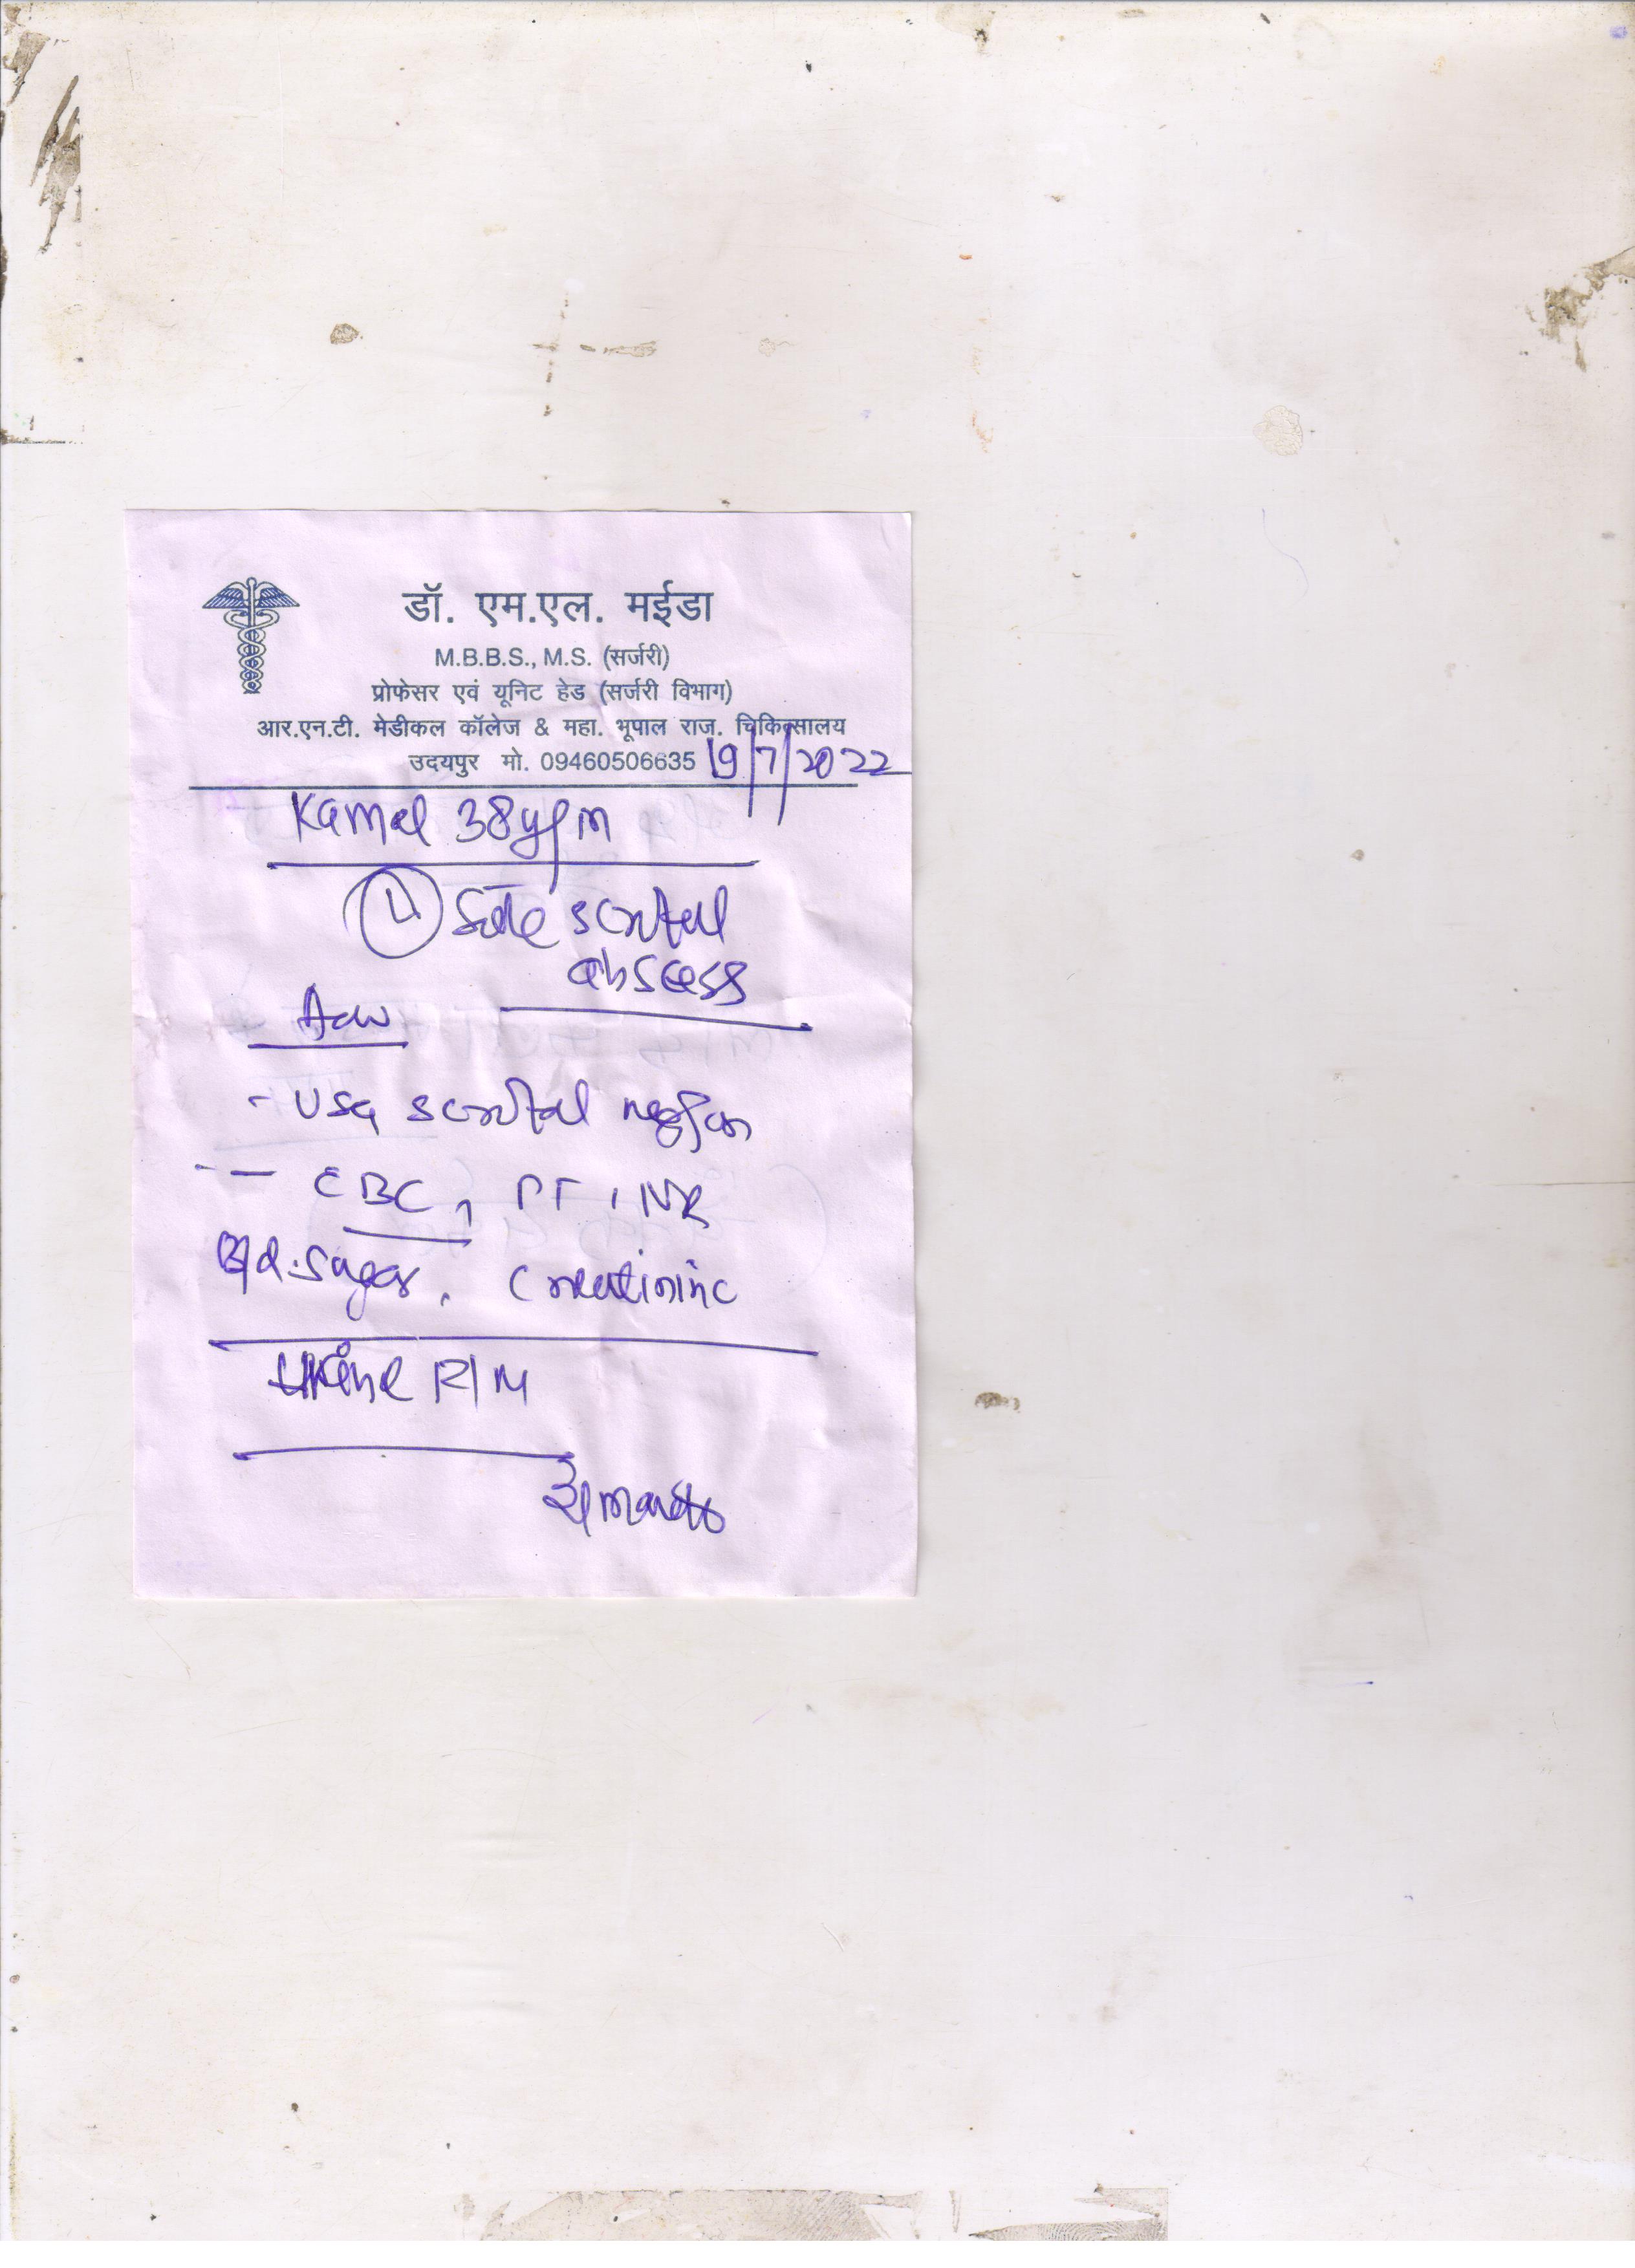 डॉ. एम.एल. मईडा
M.B.B.S., M.S. (सर्जरी)
प्रोफेसर एवं यूनिट हेड (सर्जरी विभाग)
आर.एन.टी. मेडीकल कॉलेज & महा. भूपाल राज. चिकित्सालय
उदयपुर मो. 09460506635 19/7/2022
Kamal 38y/m
L Side scrotal
abscess
Adv
- USG scrotal region
- CBC, PT INR
Bd. Sugar, Creatinine
Urine R/M